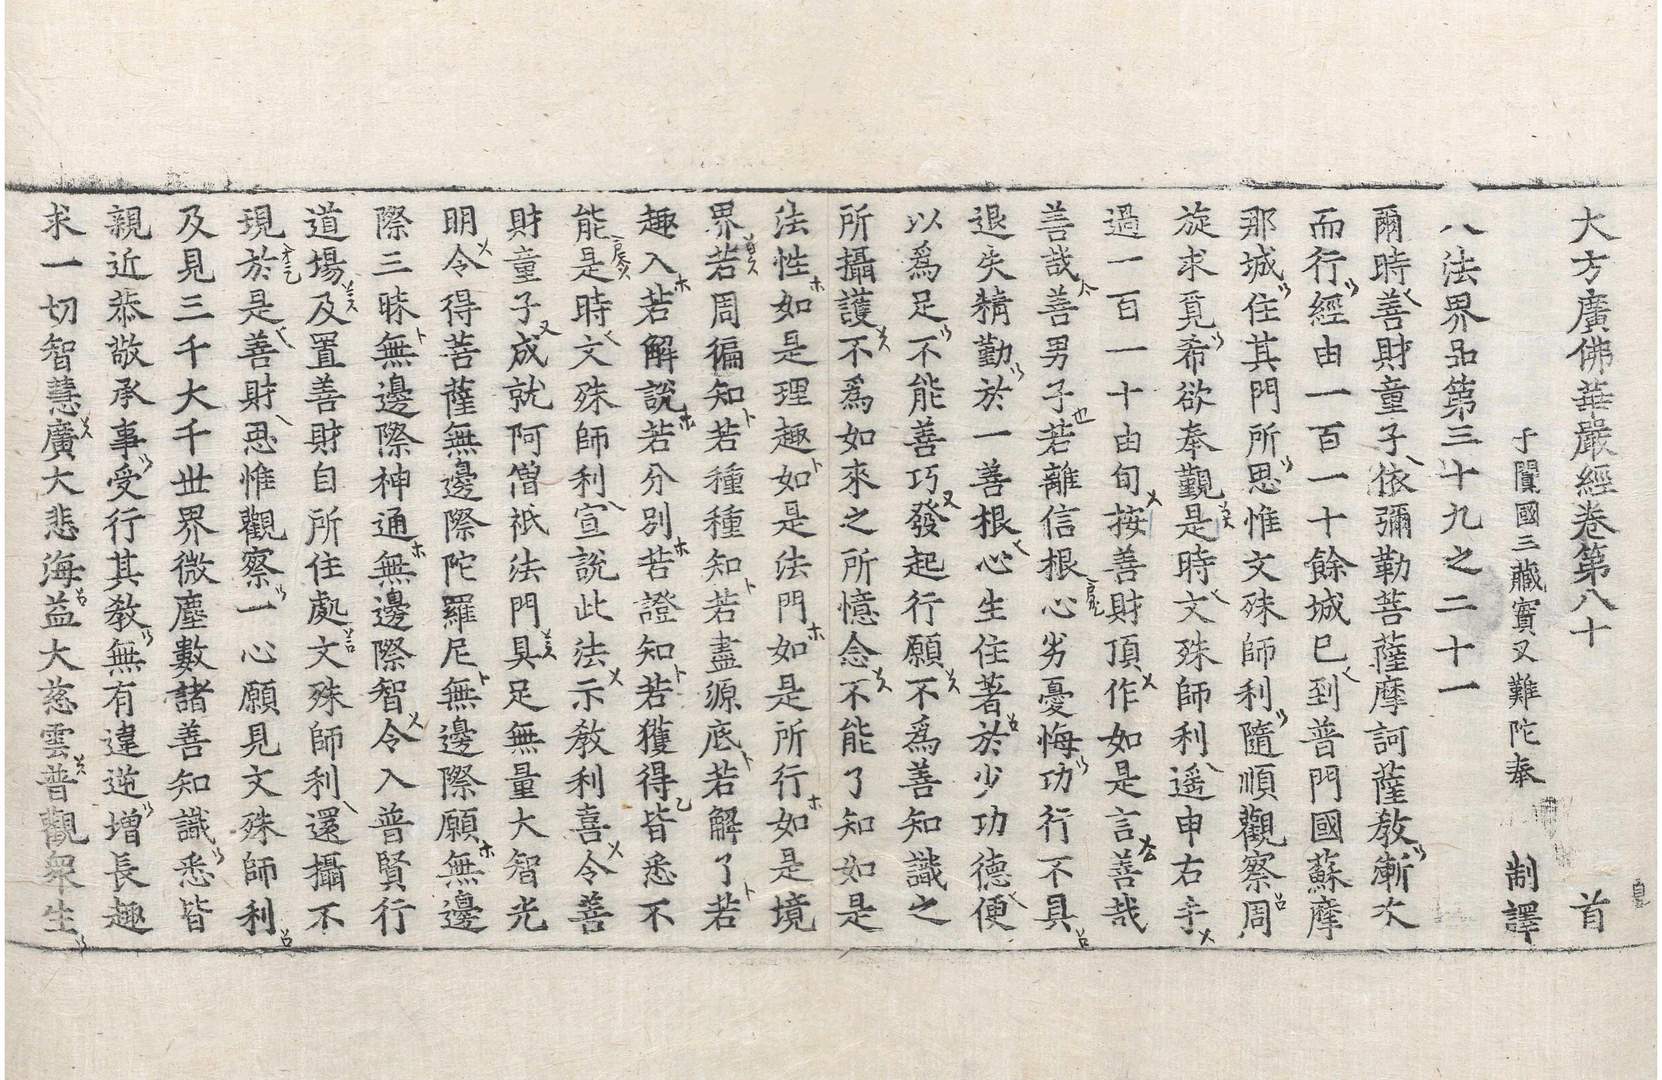 大方廣佛華嚴經卷第八十 首
于闐國三藏實叉難陀奉 制譯
八法界品第三十九之二十一
爾時善財童子依彌勒菩薩摩訶薩教漸次
而行經由一百一十餘城已到普門國蘇摩
那城住其門所思惟文殊師利隨順觀察周
旋求覓希欲奉觀是時文殊師利遥申右手
過一百一十由旬按善財頂作如是言善哉
善哉善男子若離信根心劣憂悔功行不具
退失精勤於一善根心生住著於少功德便
以爲足不能善巧發起行願不爲善知識之
所攝護不爲如來之所憶念不能了知如是
法性如是理趣如是法門如是所行如是境
界若周徧知若種種知若盡源底若解了若
趣入若解說若分別若證知若獲得皆悉不
能是時文殊師利宣說此法示教利喜令善
財童子成就阿僧祇法門具足無量大智光
明令得菩薩無邊際陀羅尼無邊際願無邊
際三昧無邊際神通無邊際智令入普賢行
道場及置善財自所住處文殊師利還攝不
現於是善財思惟觀察一心願見文殊師利
及見三千大千世界微塵數諸善知識悉皆
親近恭敬承事受行其教無有違逆增長趣
求一切智慧廣大悲海益大慈雲普觀衆生